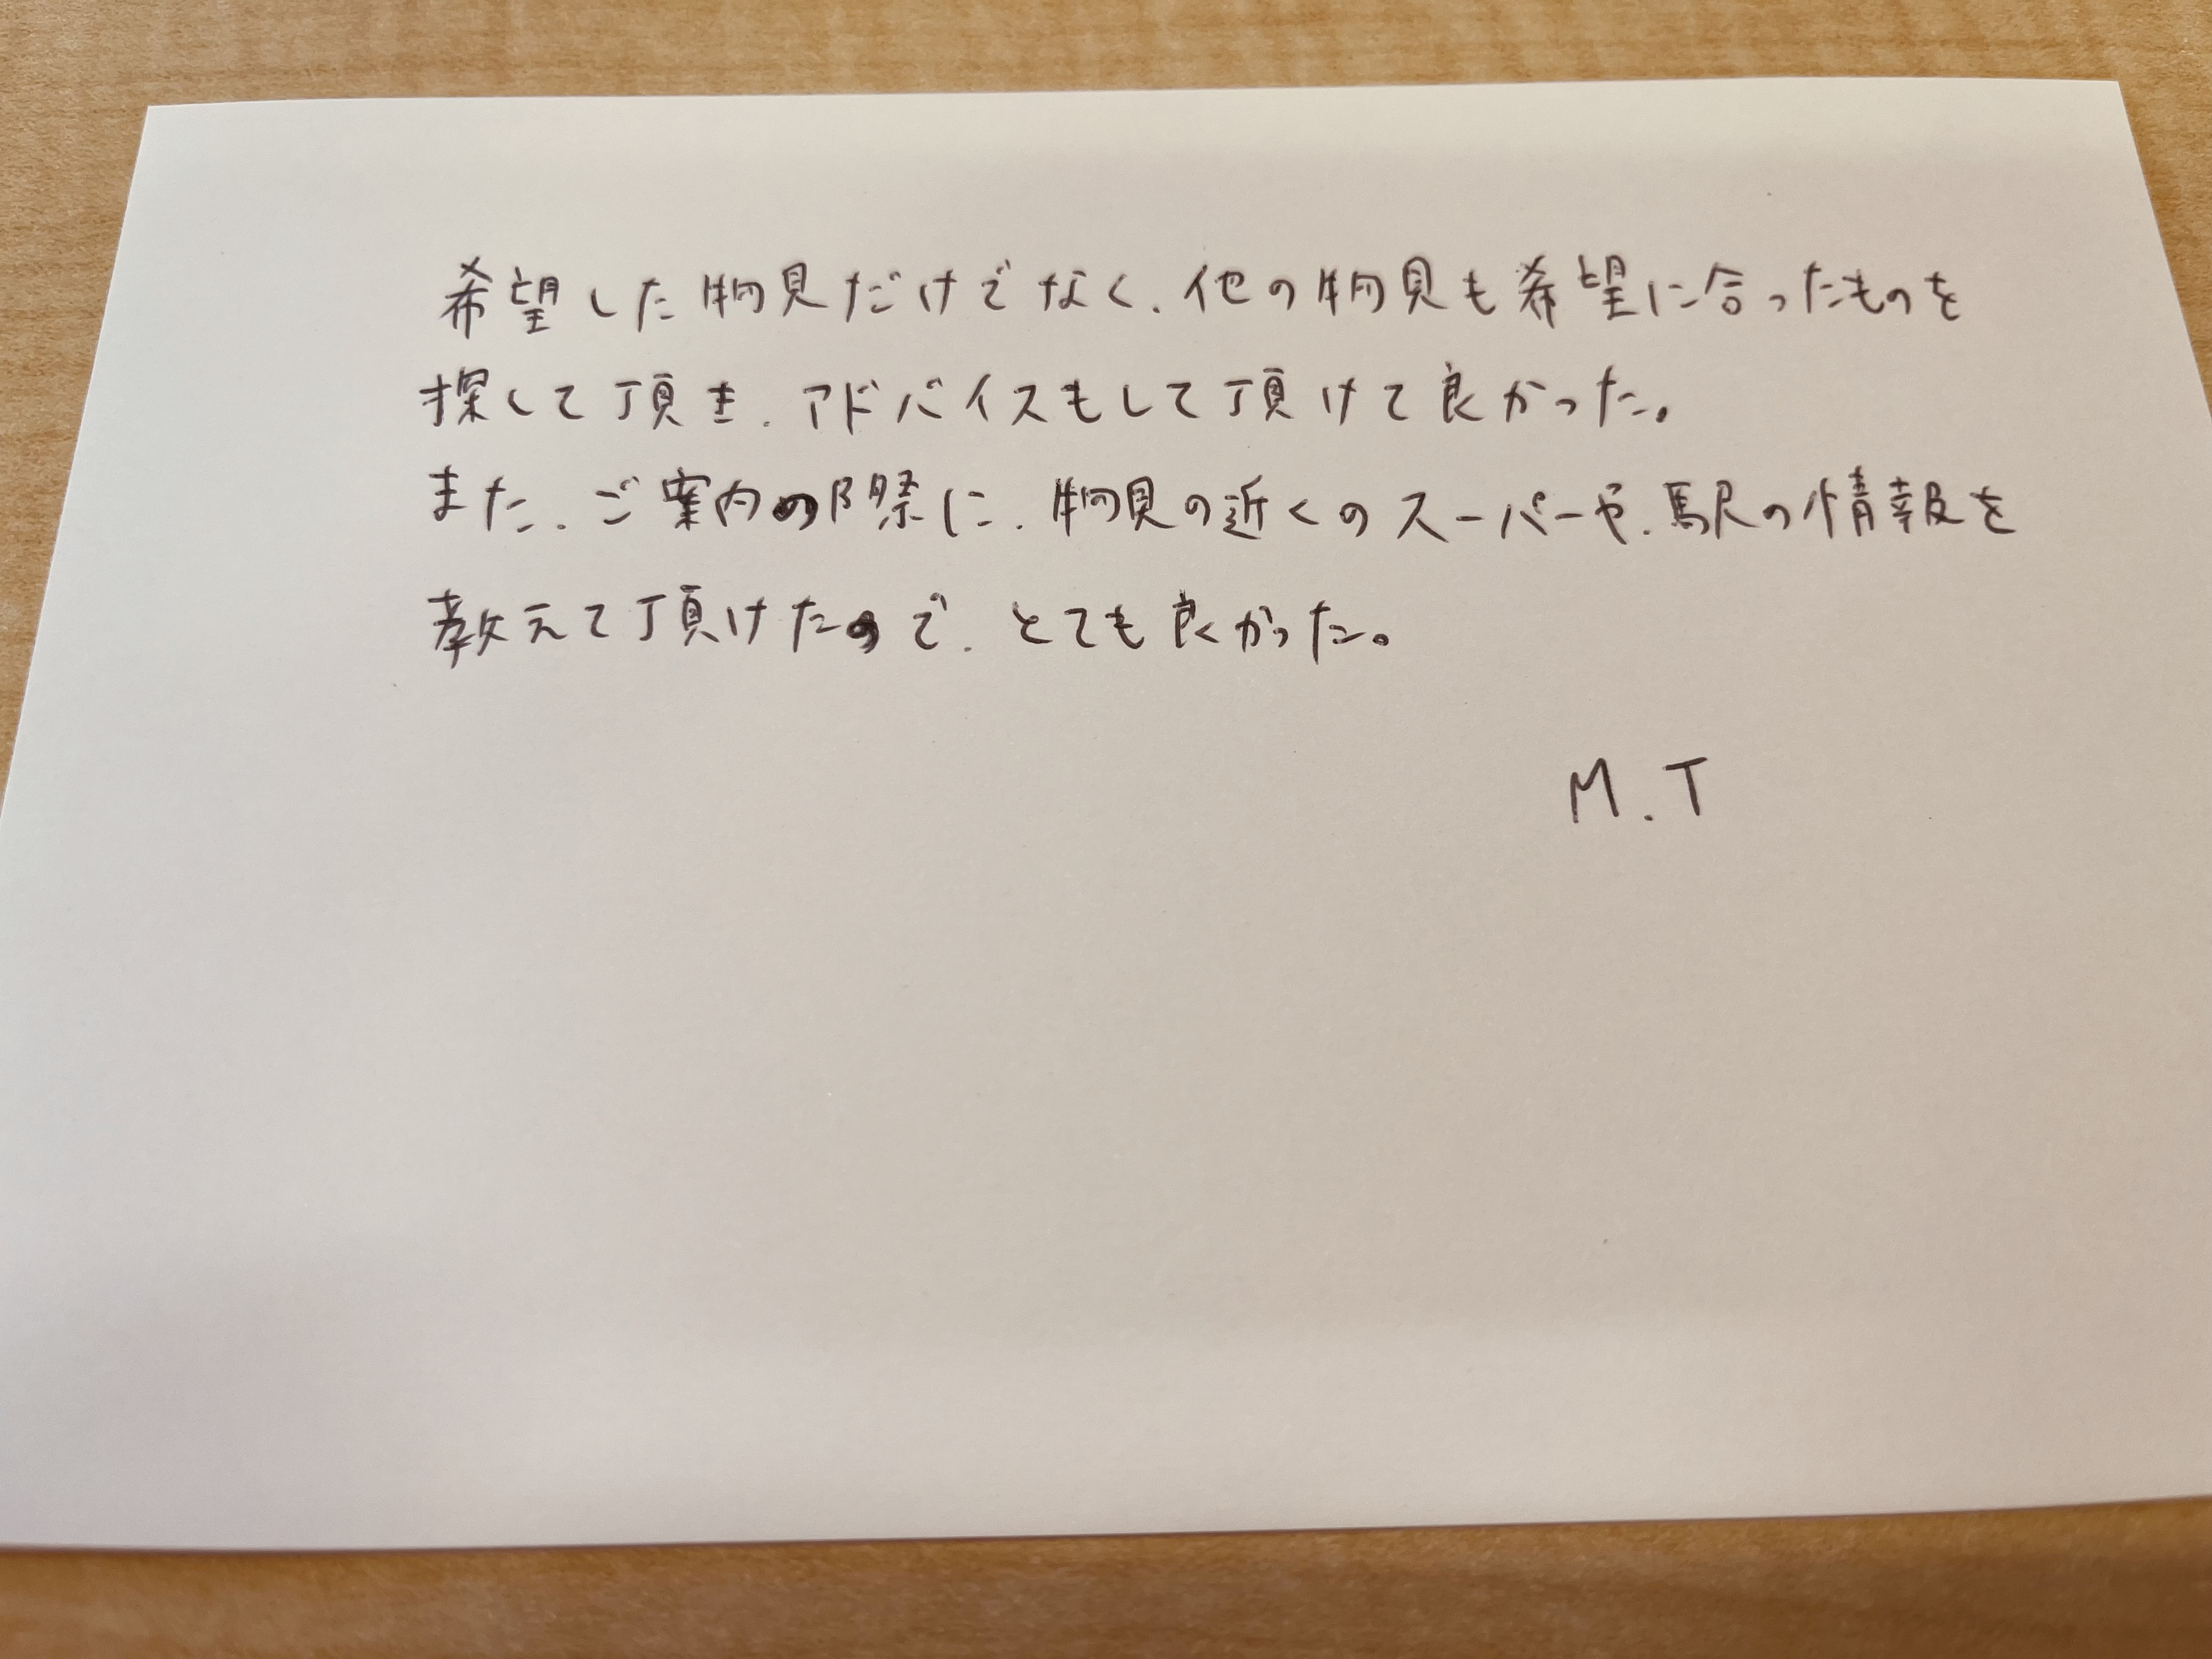 希望した物見だけでなく、他の物見も希望に合ったものを
探して頂き、アドバイスもして頂けて良かった。
また、ご案内の際に、物見の近くのスーパーや、駅の情報を
教えて頂けたので、とても良かった。
M.T